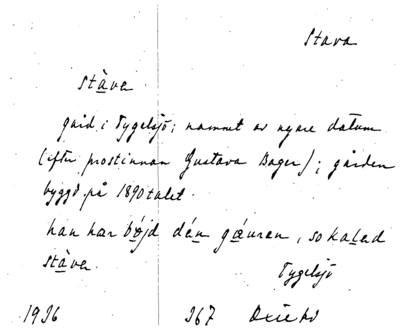 Stava
stạ̀va
gård i Tygelsjö; namnet av nyare datum
(efter prostinnan Gustava Bager); gården
byggd på 1890talet.
han har bø̱jd dén gǽu̱ran, so ka̱lad
stạ̀va
Tygelsjö
1926 267 Oxie hd